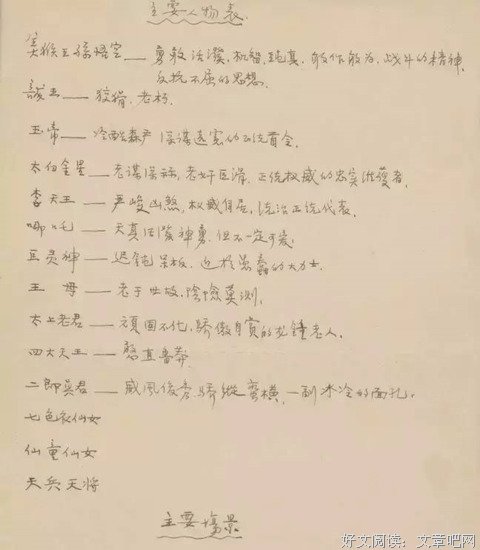 主要人物表
美猴王孫悟空——勇敢活潑,机智,純真,敢作敢为,战斗的精神,
反抗不屈的思想.
龍王——狡猾,老朽.
玉帝——冷酷森严 深谋远窓的统首令.
太白金星——老谋深祘,老奸巨滑,正统权威的忠实維護者.
李天王——严峻凶煞,权威自居,统治正统代表.
哪吒——天真活潑神勇,但不一定可爱.
巨灵神——迟钝呆板,近於愚蠢的大力士.
王 母——老于世故,陰險莫测.
太上老君——頑固不化,驕傲自賞的龙鍾老人.
四大天王——憨直魯莽.
二郎真君——威風俊秀,驕縱蛮横,一副冰冷的面孔.
七色衣仙女
仙童仙女
天兵天将
主要場景
好文阅读:文章吧网